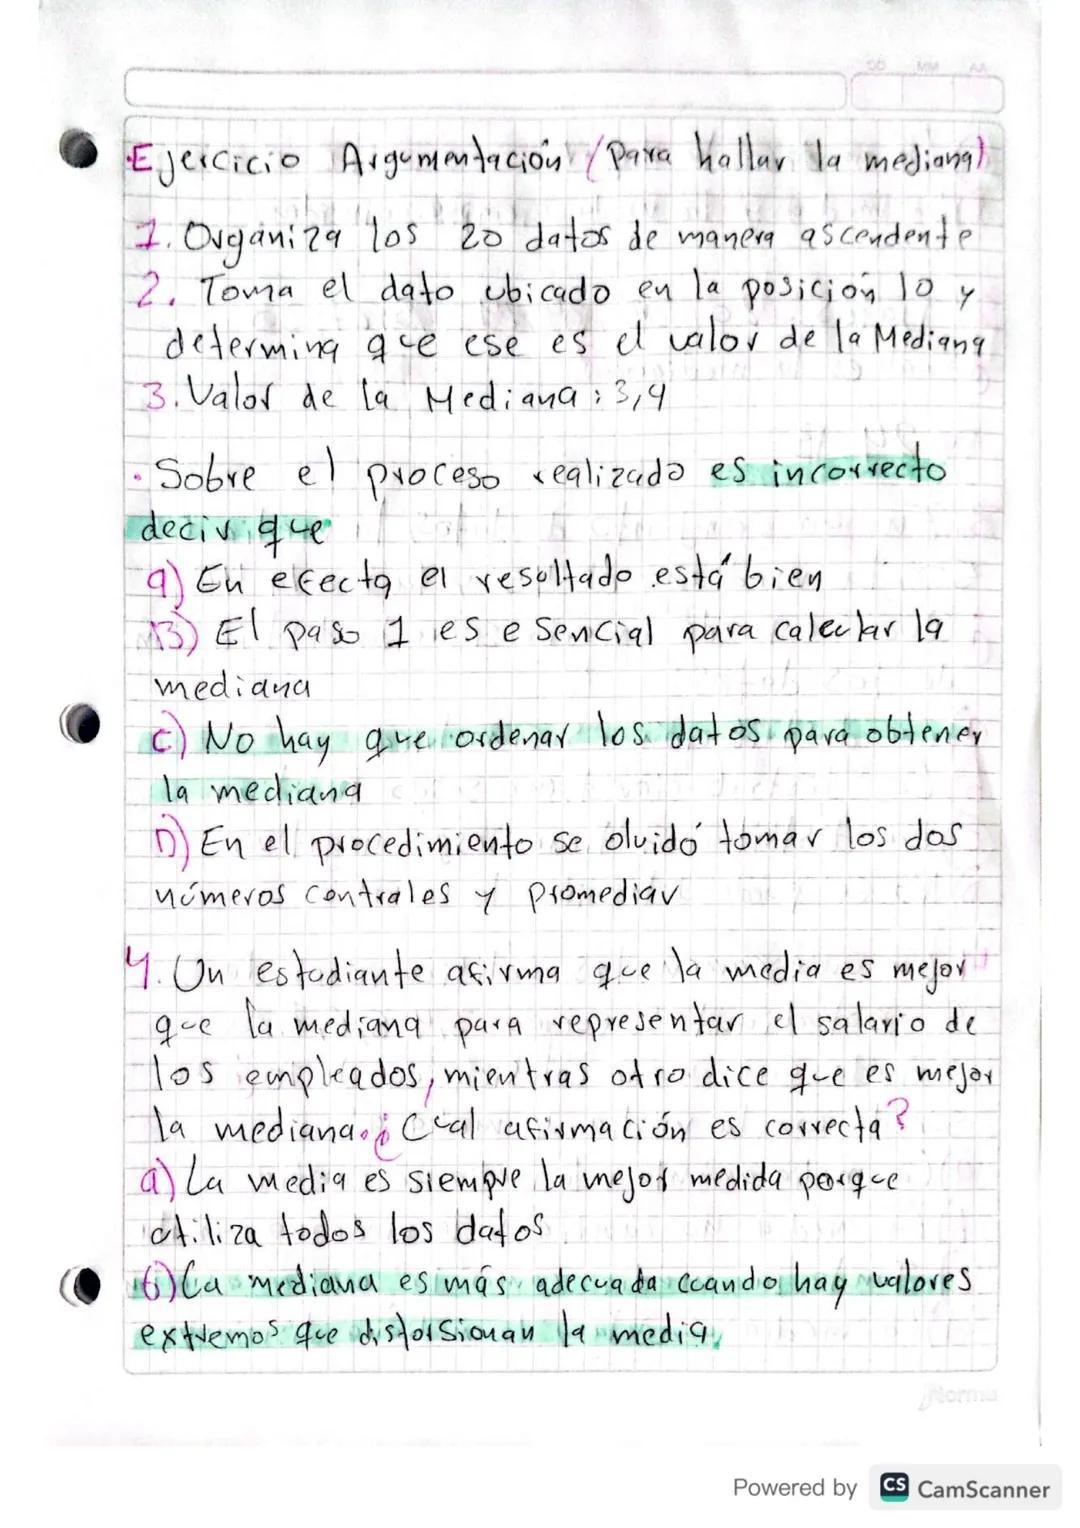 DD MM AA
• Ejercicio Argumentación (Para hallar la mediana)
1. Organiza los 20 datos de manera ascendente
2. Toma el dato ubicado en la posición 10 y
determina que ese es el valor de la Mediana
3. Valor de la Mediana: 3,4
• Sobre el proceso realizado es incorrecto
decir que
a) En efecto el resultado está bien
B) El paso 1 es esencial para calcular la
mediana
C) No hay que ordenar los datos para obtener
la mediana
D) En el procedimiento se olvidó tomar los dos
números centrales y promediar
4. Un estudiante afirma que la media es mejor
que la mediana para representar el salario de
los empleados, mientras otro dice que es mejor
la mediana. ¿Cual afirmación es correcta?
a) La media es siempre la mejor medida porque
utiliza todos los datos
b) La mediana es más adecuada cuando hay valores
extremos que distorsionan la media.
Norma
Powered by CS CamScanner